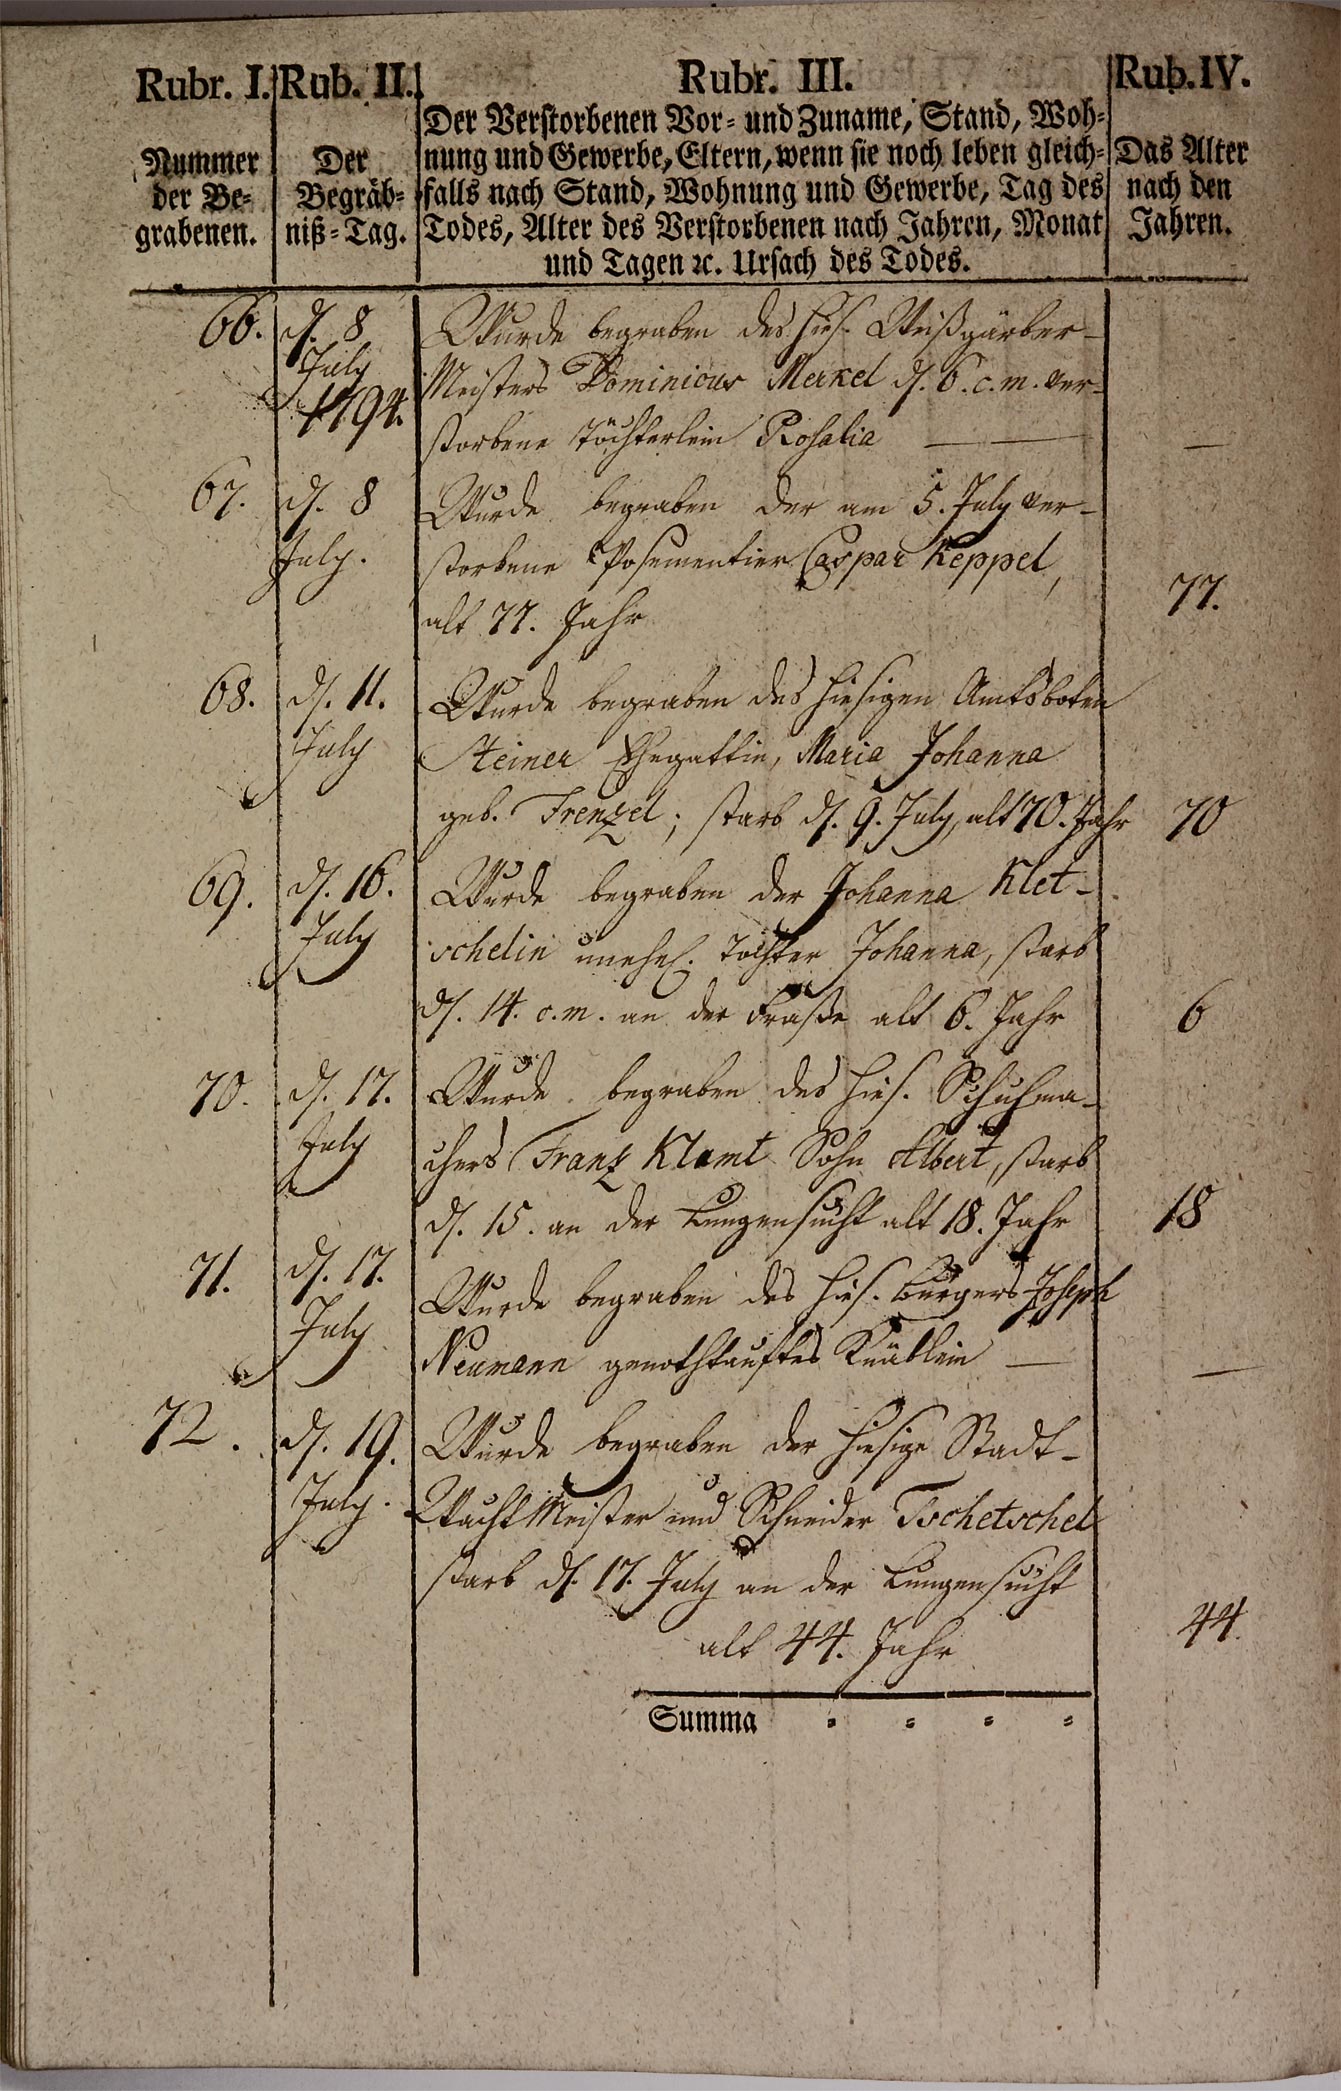 Rubr. I. Rub. II. Rubr. III. Rub. IV.
Nummer der Be=
grabenen.
Der
Begräb=
niß=Tag.
Der Verstorbenen Vor= und Zuname, Stand, Woh=
nung und Gewerbe, Eltern, wenn sie noch leben gleich=
falls nach Stand, Wohnung und Gewerbe, Tag des
Todes, Alter des Verstorbenen nach Jahren, Monat
und Tagen ꝛc. Ursach des Todes.
Das Alter
nach den
Jahren.
66. d. 8 Wurde begraben des hies. Weißgärber-
July Meisters Dominicus Merkel d. 6. c. m. ver-
1794. storbene Töchterlein Rosalia — —
67. d. 8 Wurde begraben der am 5. July ver-
July. storbene Posementier Caspar Keppel,
alt 77. Jahr 77.
68. d. 11. Wurde begraben des hiesigen Amtsboten
July Steiner Ehegattin, Maria Johanna
geb. Frenzel; starb d. 9. July, alt 70. Jahr 70
69. d. 16. Wurde begraben der Johanna Klet-
July schelin unehel. Tochter Johanna, starb
d. 14. c. m. an der Fraße alt 6. Jahr 6
70. d. 17. Wurde begraben des hies. Schuhma-
July chers Franz Klamt Sohn Albert, starb
d. 15. an der Lungensucht alt 18. Jahr 18
71. d. 17. Wurde begraben des hies. Bürgers Joseph
July Neumann genothtauftes Knäblein — —
72. d. 19. Wurde begraben der hiesige Stadt-
July. WachtMeister und Schneider Tschetschel
starb d. 17. July an der Lungensucht
alt 44. Jahr 44.
Summa = = = =